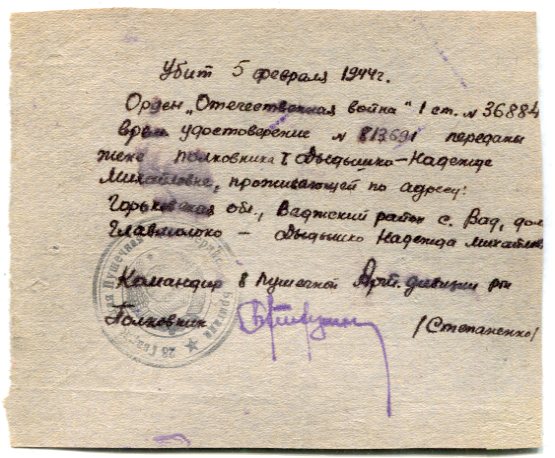 Убит 5 февраля 1944г.
Орден „Отечественная война" 1 ст. № 36884
врем. удостоверение № 813691 переданы
жене полковника т. Дыдышко - Надежде
Михайловне, проживающей по адресу:
Горьковская обл., Ваджский район с. Вад, дом
Главмолоко — Дыдышко Надежда Михайлов
Командир 8 Пушечной Арт. дивизии РГК
Полковник /Степаненко/